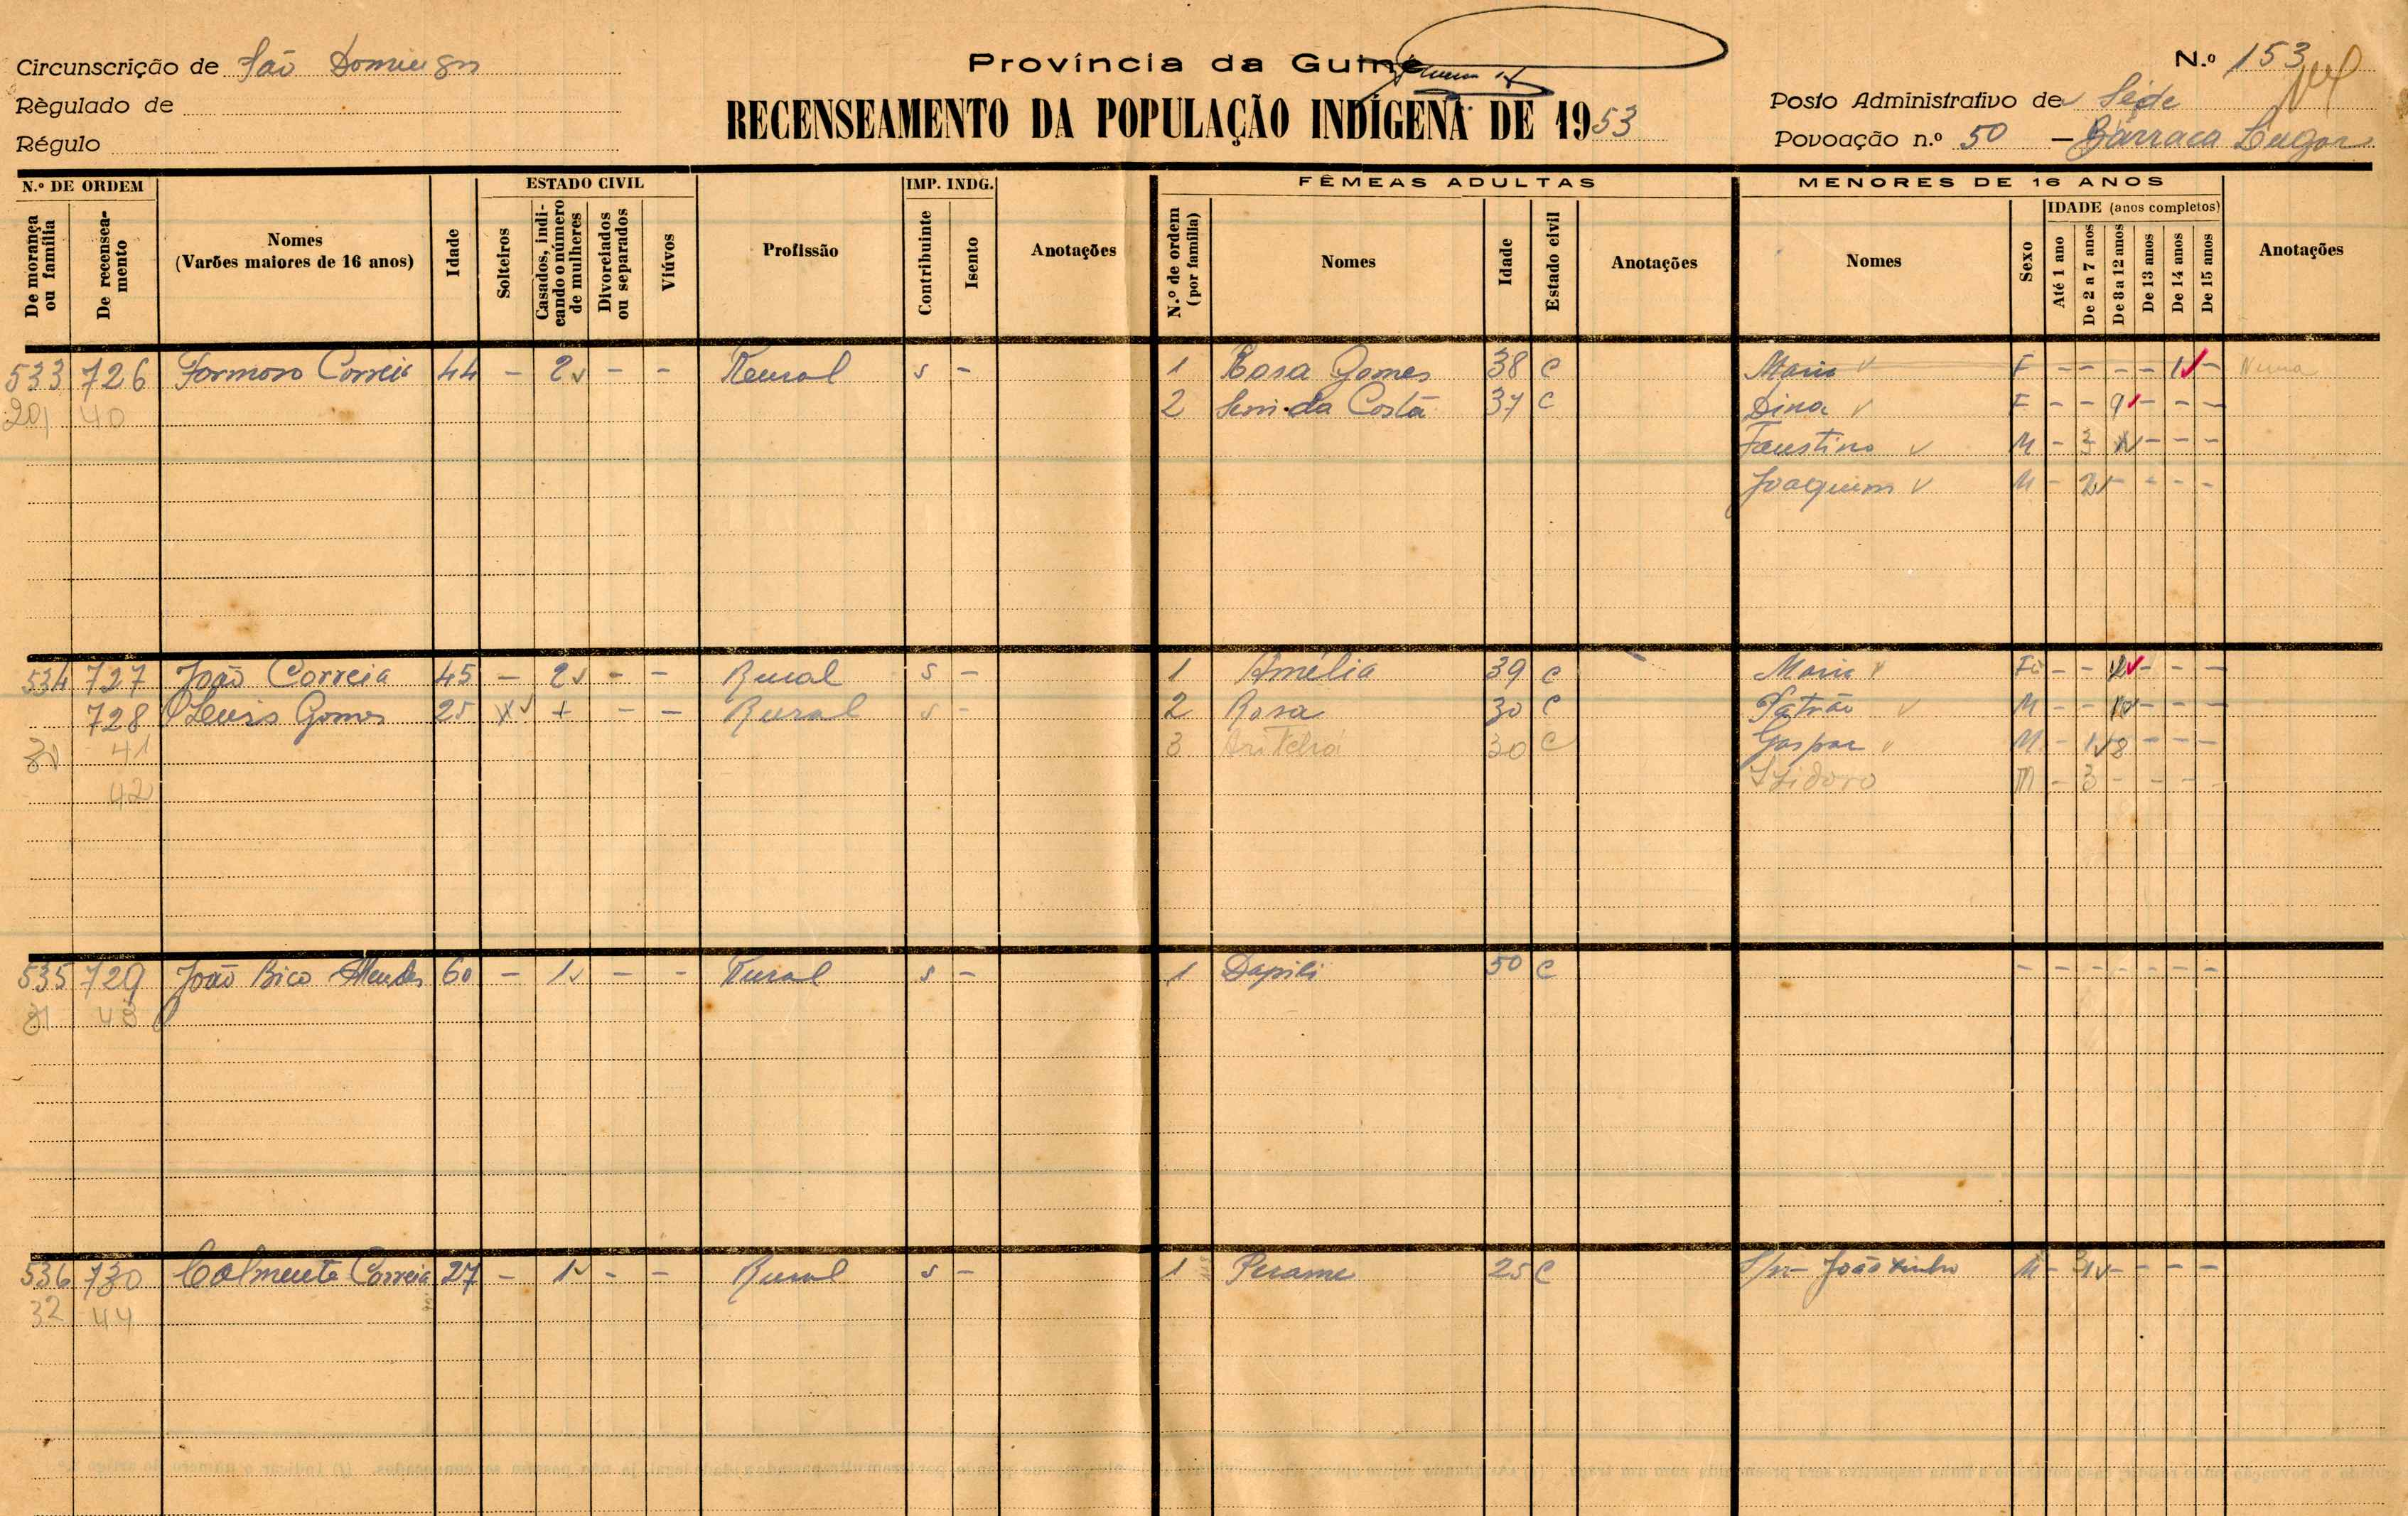 Circunscrição de São Domingos
Província da Guiné
N.º 153
Règulado de
RECENSEAMENTO DA POPULAÇÃO INDÍGENA DE 1953
Posto Administrativo de Séde
Régulo
Povoação n.º 50 — Barraca Lugar
N.º DE ORDEM
De morança ou família
De recensea-mento
Nomes
(Varões maiores de 16 anos)
Idade
ESTADO CIVIL
Solteiros
Casados, indi-cando o número de mulheres
Divorciados ou separados
Viúvos
Profissão
IMP. INDG.
Contribuinte
Isento
Anotações
FÊMEAS ADULTAS
N.º de ordem (por família)
Nomes
Idade
Estado civil
Anotações
MENORES DE 16 ANOS
Nomes
Sexo
IDADE (anos completos)
Até 1 ano
De 2 a 7 anos
De 8 a 12 anos
De 13 anos
De 14 anos
De 15 anos
Anotações
533 726 Formoso Correia 44 - 2 - - Rural s - 1 Rosa Gomes 38 C Maria F - - - - 1 -
40 2 da Costa 37 C Dina F - - 9 - - -
Faustino M - 3 - - -
Joaquim M - 2 - - - -
534 727 João Correia 45 - 2 - - Rural s - 1 Amélia 39 C Maria F - - 12 - - -
728 Luis Gomes 25 X + - - Rural s - 2 Rosa 30 C Patrão M - - - - -
41 3 30 C Gaspar M - 8 - - -
42 Izidoro M - 3 - - - -
535 729 João Bico Mendes 60 - 1 - - Rural s - 1 Dapili 50 C - - - - - - -
43
536 730 Calmente Correia 27 - 1 - - Rural s - 1 Perame 25 C S/n - Joãoxinho M - - - - -
32 44